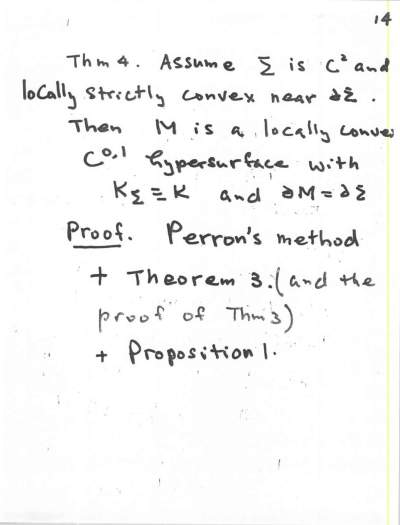 14
Thm 4. Assume Σ is C² and
locally strictly convex near ∂Σ.
Then M is a locally convex
C^{0,1} hypersurface with
K_Σ ≡ K and ∂M = ∂Σ
Proof. Perron's method
+ Theorem 3. (and the
proof of Thm 3)
+ Proposition 1.